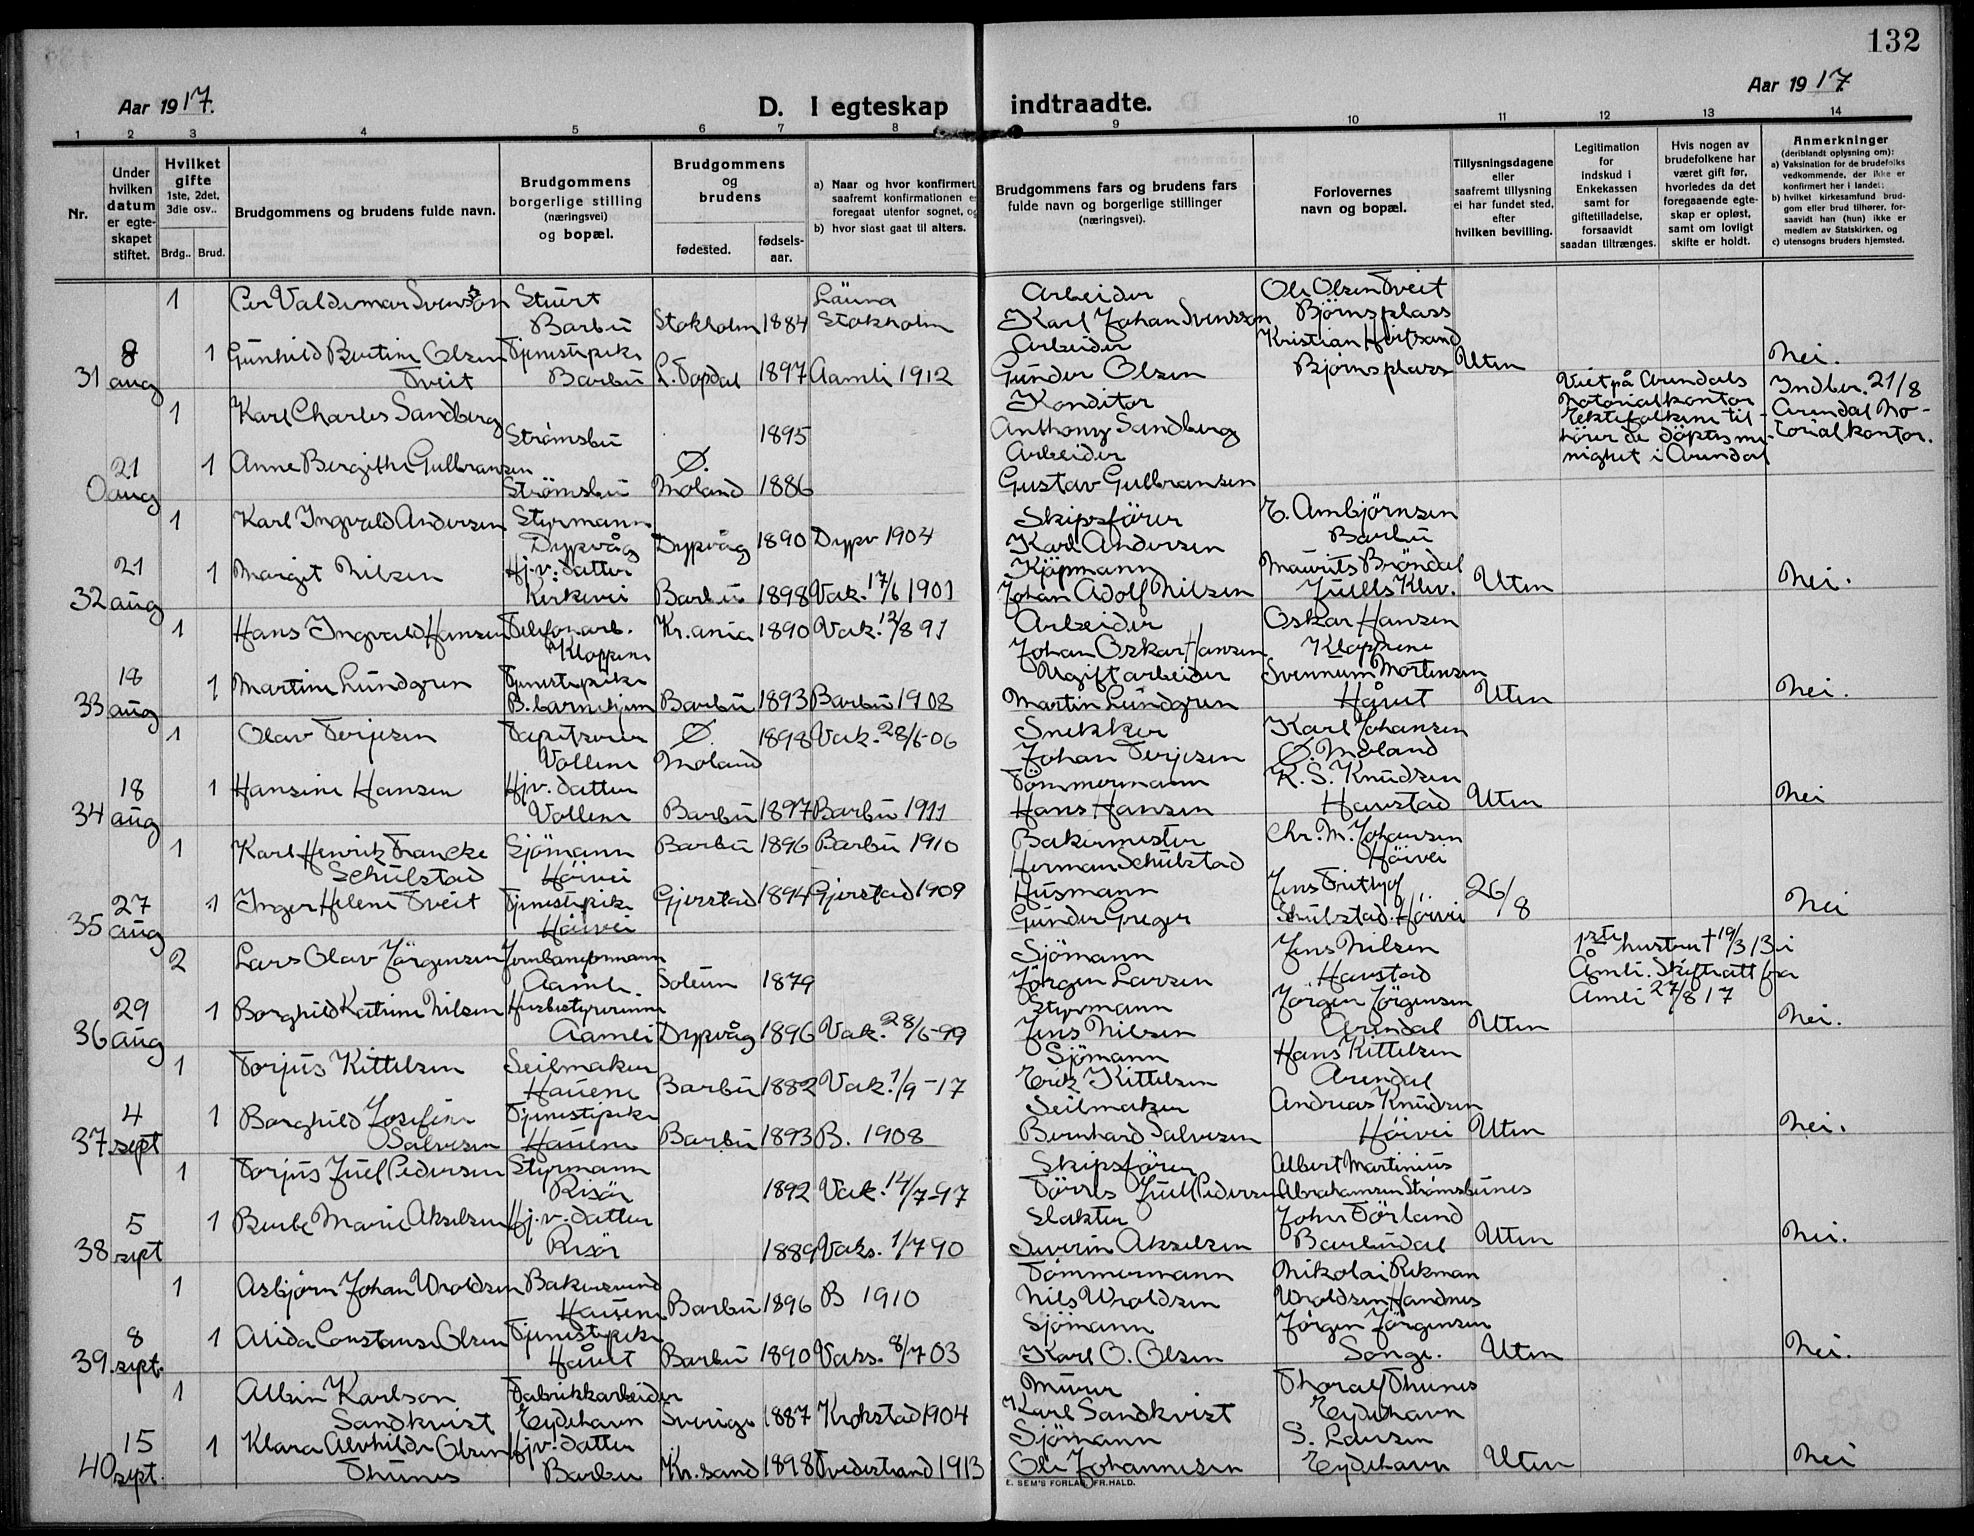 132
Aar 1917.
D. I egteskap indtraadte.
Aar 1917
1 2 3 4 5 6 7 8 9 10 11 12 13 14
Nr.
Under hvilken datum er egteskapet stiftet.
Hvilket gifte 1ste, 2det, 3die osv..
Brdg.. Brud.
Brudgommens og brudens fulde navn.
Brudgommens borgerlige stilling (næringsvei) og bopæl.
Brudgommens og brudens
fødested. fødselsaar.
a) Naar og hvor konfirmert, saafremt konfirmationen er foregaat utenfor sognet, og
b) hvor sidst gaat til alters.
Brudgommens fars og brudens fars fulde navn og borgerlige stillinger (næringsvei).
Forlovernes navn og bopæl.
Tillysningsdagene eller saafremt tillysning ei har fundet sted, efter hvilken bevilling.
Legitimation for indskud i Enkekassen samt for giftetilladelse, forsaavidt saadan tiltrænges.
Hvis nogen av brudefolkene har været gift før, hvorledes da det foregaaende egteskap er opløst, samt om lovligt skifte er holdt.
Anmerkninger
(deriblandt oplysning om):
a) Vaksination for de brudefolks vedkommende, der ikke er konfirmert her i landet;
b) hvilket kirkesamfund brudgom eller brud tilhører, forsaavidt han (hun) ikke er medlem av Statskirken, og
c) utensogns bruders hjemsted.
1 Per Valdemar Svensson Stuert Läuna Arbeider Ole Olsen Tveit
Barbu Stokholm 1884 Stokholm Karl Johan Svensson Bjørnsplass
8 1 Gunhild Bertine Olsen Tjenestepike Arbeider Kristian
31 aug Tveit Barbu L. Topdal 1897 Aamli 1912 Gunder Olsen Bjørnsplass Uten Nei.
1 Karl Charles Sandberg Konditor Viet på Arendals Indber. 21/8
Strømsbu 1895 Anthony Sandberg Notorialkontor Arendal No-
Ektefolkene til- torialkontor.
hører de döptes me-
nighet i Arendal
21 1 Anne Bergithe Gulbransen Ø. Arbeider
0 aug Strømsbu Moland 1886 Gustav Gulbransen
1 Karl Ingvald Andersen Styrmann Skipsförer E. Ambjörnsen
Dypvåg Dypvåg 1890 Dypv 1904 Karl Andersen Barbu
21 1 Margit Nilsen Hj.v. datter Kjöpmann Maurits Bröndal
32 aug Kirkevei Barbu 1898 Vak. 17/6 1901 Johan Adolf Nilsen Juells Klev. Uten Nei.
1 Hans Ingvald Hansen Telefonarb. Kr.ania 1890 Vak. 12/8 91 Arbeider Oskar Hansen
Kloppene Johan Oskar Hansen Kloppene
18 1 Martine Lundgren Tjenestepike Ugift arbeider Svennum Mortensen
33 aug B. barnehjem Barbu 1893 Barbu 1908 Martin Lundgren Håvet Uten Nei.
1 Olav Terjesen Tapetserer Ø. 1898 Vak. 28/6-06 Snekker Karl Johansen
Vollene Moland Johan Terjesen Ø. Moland
18 1 Hansine Hansen Hjv. datter Tömmermann K. S. Knudsen
34 aug Vollene Barbu 1897 Barbu 1911 Hans Hansen Havstad Uten Nei
1 Karl Henrik Francke Sjömann Barbu 1896 Barbu 1910 Bakermester Chr. M. Johansen
Schulstad Höivei Herman Schulstad Höivei
27 1 Inger Helene Tveit Tjenestepike Gjerstad 1894 Gjerstad 1909 Husmann Jens Frithjof 26/8 Nei
35 aug Höivei Gunder Greger Schulstad. Höivei
2 Lars Olav Jörgensen Jernbaneformann Sjömann Jens Nilsen 1ste hustru † 19/3 13 i
Aamli Soleim 1879 Jörgen Larsen Havstad Åmli. Skifteratt fra
29 1 Borghild Katrine Nilsen Husbestyrerinne Styrmann Jörgen Jörgensen Åmli 27/8 17
36 aug Aamli Dypvåg 1896 Vak. 28/6-99 Jens Nilsen Arendal Uten Nei.
1 Torjus Kittelsen Seilmaker Sjömann Hans Kittelsen
Hauene Barbu 1882 Vak. 1/9-17 Erik Kittelsen Arendal
4 1 Borghild Josefine Tjenestepike Seilmaker Andreas Knudsen
37 sept Salvesen Hauene Barbu 1893 B. 1908 Bernhard Salvesen Höivei Uten Nei.
1 Torjus Juel Pedersen Styrmann Skipsförer Albert Martinius
Risör 1892 Vak. 14/7-97 Törres Juel Pedersen Abrahamsen Strømsbunes
5 1 Berbe Marie Akselsen Hj.v. datter Slakter John Törland
38 sept Risör 1889 Vaks. 1/7 90 Severin Akselsen Barbudal Uten Nei.
1 Asbjörn Johan Vroldsen Bakersvend Tömmermann Nikolai Rekman
Hauene Barbu 1896 B 1910 Nils Vroldsen Vroldsen Handnes
8 1 Alida Constanse Olsen Tjenestepike Sjömann Jörgen Jörgensen
39 sept. Håvet Barbu 1890 Vaks. 8/7 03 Karl O. Olsen Songe. Uten Nei.
1 Albin Karlson Fabrikkarbeider Murer Thoralf Thunes
Sandkvist Eydehavn Sverige 1887 Krokstad 1904 Karl Sandkvist Eydehavn
15 1 Klara Alvhilde Olsen Hjv. datter Sjömann S. Larsen
40 sept. Thunes Barbu Kr.sand 1898 Tvedestrand 1913 Ole Johannesen Eydehavn Uten Nei
E. SEM'S FORLAG, FR.HALD.